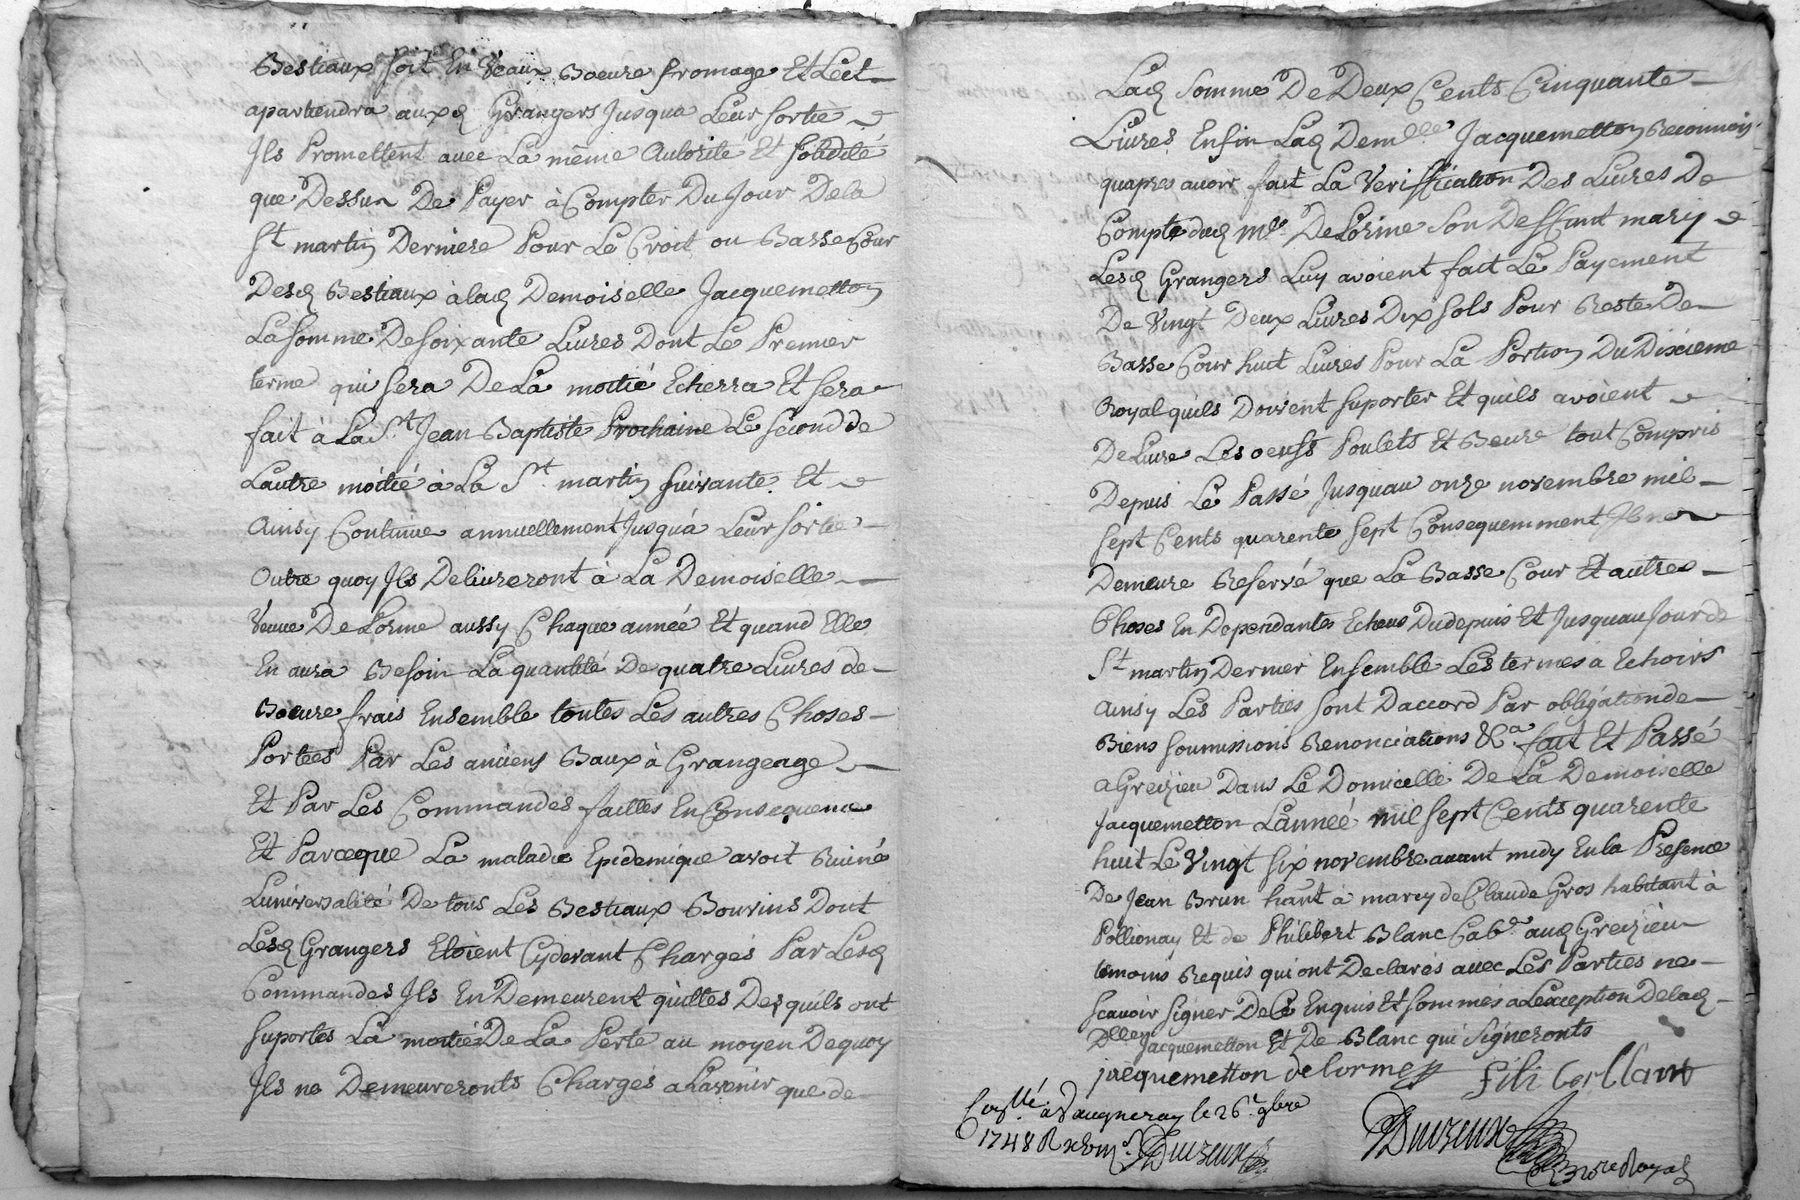 Bestiaux soit En Veaux Boeure fromage Et Lait
apartiendra auxd Grangers Jusqua Leur Sortie
Ils Promettent avec La même Autorité Et solidité
que Dessus De Payer à Compter Du Jour Dela
St martin Derniere Pour Le Croit ou Basse Cour
Desd Bestiaux à lad Demoiselle Jacquemetton
La somme De soixante Livres Dont Le Premier
terme qui sera De La moitié Echerra Et sera
fait à La St Jean Baptiste Prochaine Le second de
Lautre moitié à La St martin suivante Et
Ainsy Continüe annuellement Jusqua Leur Sortie
Outre quoy Ils Delivreront à La Demoiselle
Veuve De Lorme aussy Chaque année Et quand Elle
En aura Besoin La quantité De quatre Livres de
Boeure frais Ensemble toutes Les autres Choses
Portées Par Les anciens Baux à Grangeage
Et Par Les Commandes faittes En Consequence
Et Parceque La maladie Epidemique avoit Ruiné
Luniversalité De tous Les Bestiaux Bouvins Dont
Lesd Grangers Etoient Cydevant Chargés Par Lesd
Commandes Ils En Demeurent quittes Desquils ont
suportés La moitié De La Perte au moyen Dequoy
Ils ne Demeureronts Chargés a Lavenir que de
Lad somme De Deux Cents Cinquante
Livres Enfin Lad Demlle Jacquemetton Reconnois
quapres avoir fait La Veriffication Des Livres De
Compte dud Mr DeLorme Son Deffunt mary
Lesd Grangers Luy avoient fait Le Payement
De Vingt Deux Livres Dix sols Pour Reste De
Basse Cour huit Livres Pour La Portion Du Dixieme
Royal quils Doivent suporter Et quils avoient
De Livré Les oeufs Poulets Et Beure tout Compris
Depuis Le Passé Jusquau onze novembre mil
sept Cents quarente sept Consequemment Il ne
Demeure Reservé que La Basse Cour Et autres
Choses En Dependantes Echeus Dudepuis Et Jusquau Jour de
St martin Dernier Ensemble Les termes a Echoirs
ainsy Les Parties sont Daccord Par obligation de
Biens soumissions Renonciations &a fait Et Passé
a Greizieu Dans Le Domicille De La Demoiselle
Jacquemetton Lannée mil sept Cents quarente
huit Le Vingt six novembre avant midy En la Presence
De Jean Brun hant à marcy de Claude Gros habitant à
Pollionay Et de Philibert Blanc Cabr aud Greizieu
temoins Requis qui ont Declarés avec Les Parties ne
scavoir signer De Ce Enquis Et sommés a Lexception De lad
Dlle Jacquemetton Et De Blanc qui signeronts
jacquemetton delorme fili bert lanc
Conllé à Vaugneray le 26e 9bre
1748 R Duizeux Duizeux
Nore Royal